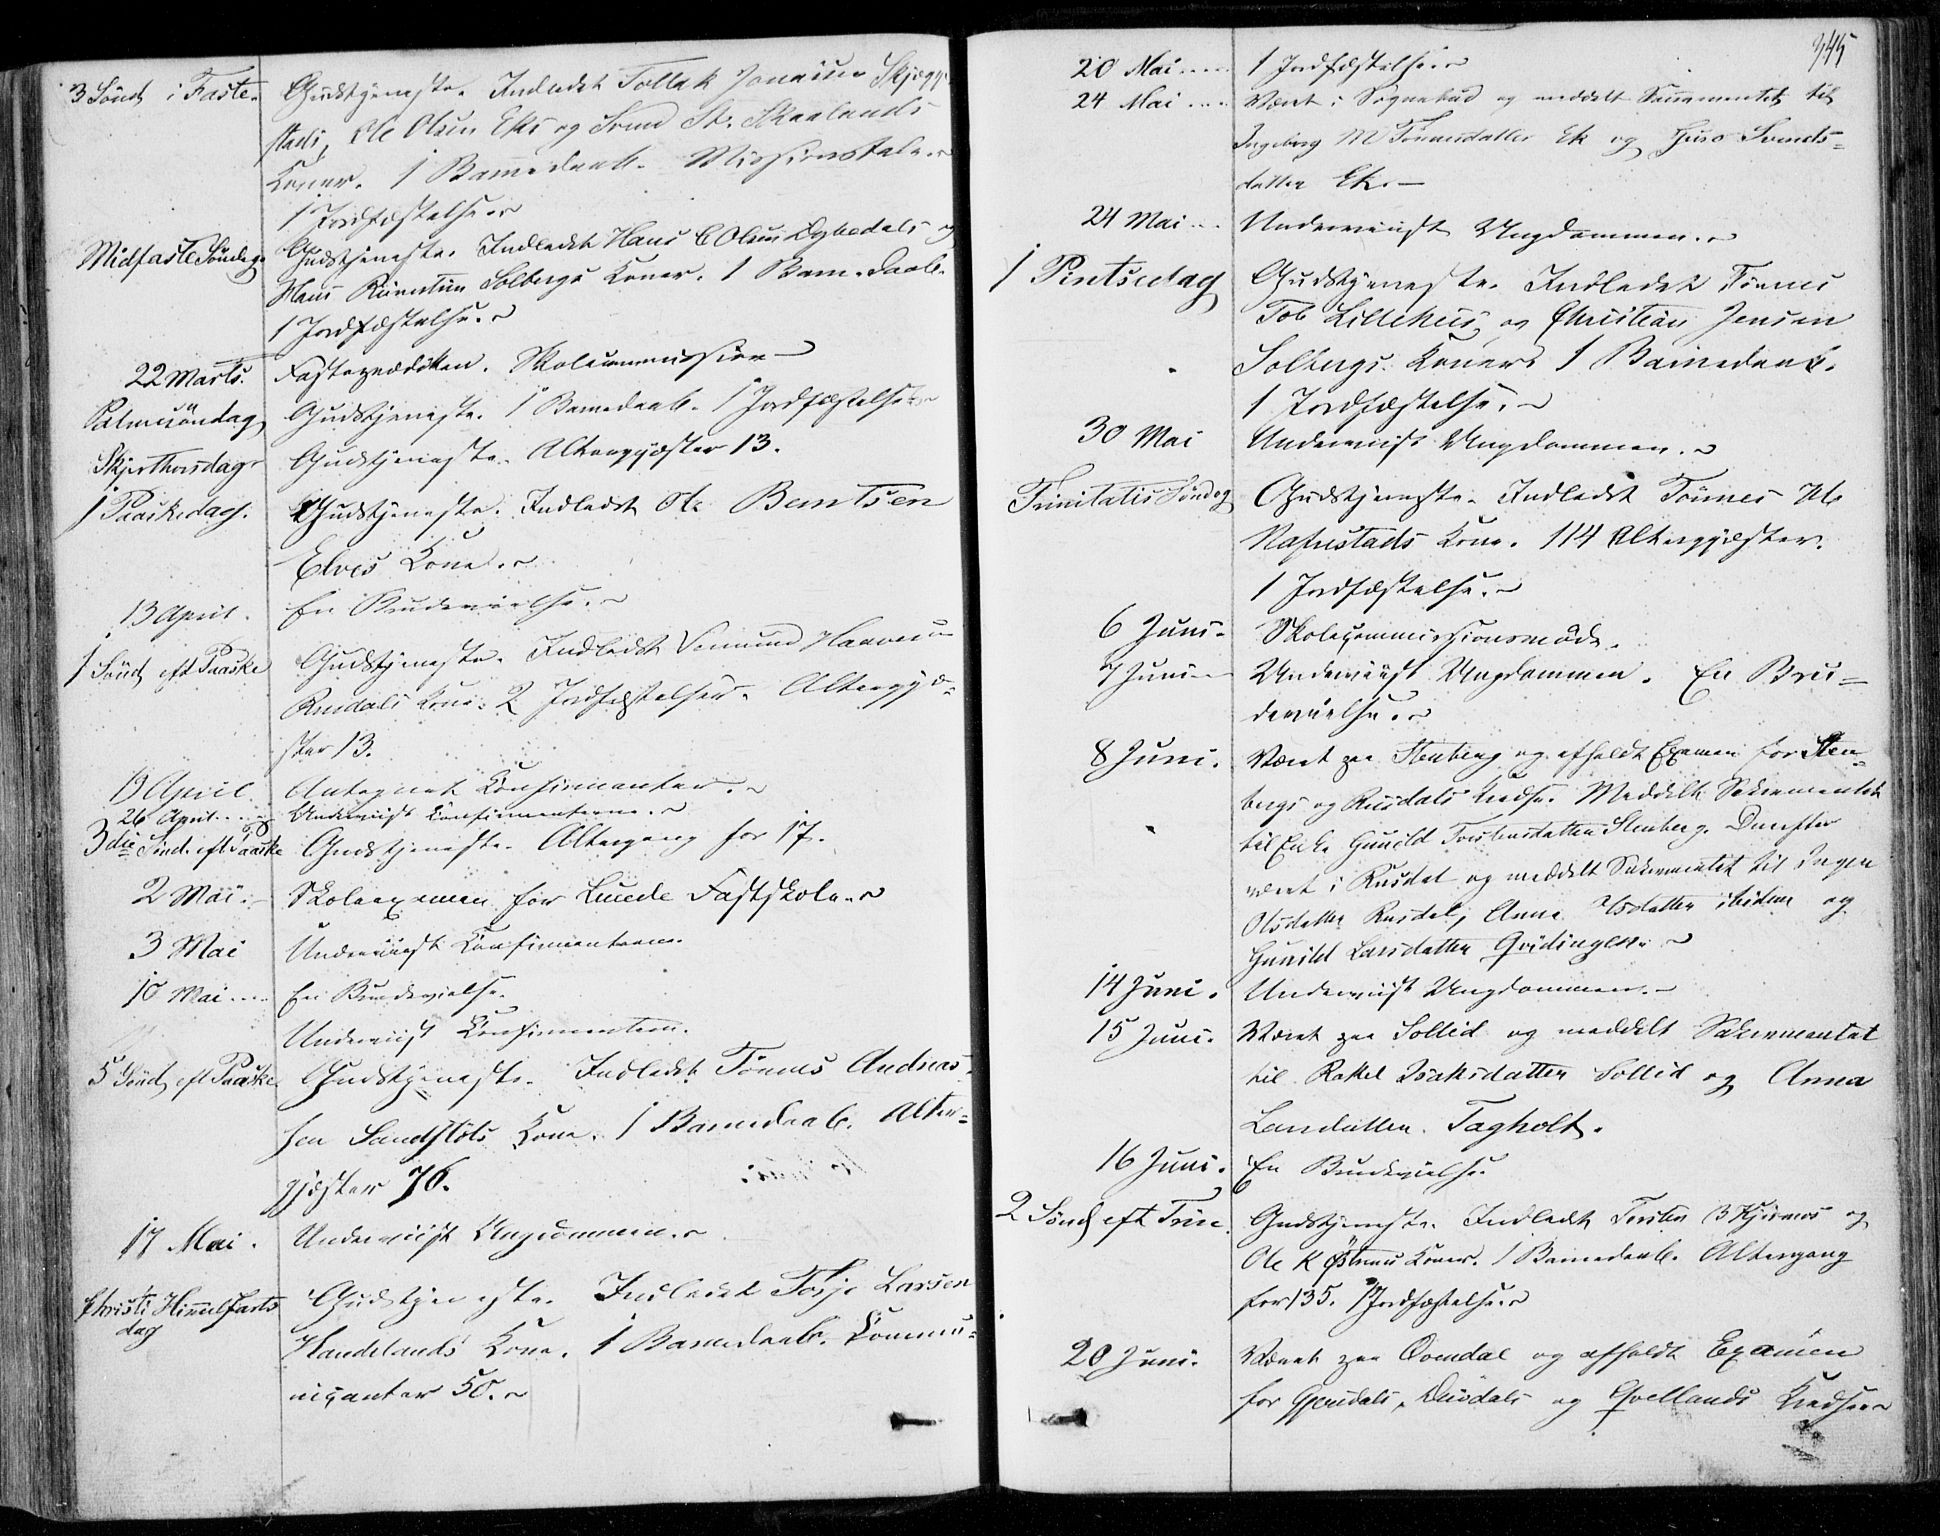 3 Sönd i Faste. Gudstjeneste. Indledet Tollak Jonassen Skjægge-
stads, Ole Olsen Eks og Svend St. Skaalands
Koner. 1 Barnedaab. Missionstale.
1 Jordfæstelse.
Midfaste Söndag. Gudstjeneste. Indledet Hans C Olsen Dybedals og
Hans Solbergs Koner. 1 Barnedaab.
1 Jordfæstelse.
22 Marts. Fasteprædiken. Skolecommission
Palmesöndag Gudstjeneste. 1 Barnedaab. 1 Jordfæstelse
Skjerthorsdag Gudstjeneste. Altergjæster 13.
1 Paaskedag. Gudstjeneste. Indledet Ole Berntsen
Elves Kone.
13 April. En Brudevielse.
1 Sönd eft Paaske Gudstjeneste. Indledet Haaversen
Rusdals Kone. 2 Jordfæstelser. Altergjæ-
ster 13.
19 April Antegnet Konfirmanter.
26 April Underviist Konfirmanterne.
3die Sönd. eft Paaske Gudstjeneste. Altergang for 17.
2 Mai. Skoleexamen for Lunde Fastskole.
3 Mai Underviist Konfirmanterne.
10 Mai En Brudevielse.
Underviist Konfirmanterne.
5 Sönd eft Paaske Gudstjeneste. Indledet Tönnes Andreas-
sen Sandstöls Kone. 1 Barnedaab. Alter-
gjæster 76.
17 Mai. Underviist Ungdommen.
Christi Himmelfarts Gudstjeneste. Indledet Tosje Larsen
dag Haudelands Kone. 1 Barnedaab. Commu-
nicanter 50.
345
20 Mai 1 Jordfæstelse.
24 Mai Været i Sognebud og meddelt Sacramentet til
Ingeborg M Tönnesdatter Ek og Guro Svends-
datter Ek.
24 Mai Underviist Ungdommen.
1 Pintsedag Gudstjeneste. Indledet Tönnes
Tob Lillehus og Christian Jensen
Solbergs Koner 1 Barnedaab.
1 Jordfæstelse.
30 Mai Underviist Ungdommen.
Trinitatis Söndag Gudstjeneste. Indledet Tönnes
Nafnestads Kone. 114 Altergjæster.
1 Jordfæstelse.
6 Juni. Skolecommissionsmöde.
7 Juni Underviist Ungdommen. En Bru-
devielse.
8 Juni. Været paa Stenberg og afholdt Examen for Sten-
bergs og Rusdals Kreds. Meddelt Sakramentet
til Enke Gunild Torstensdatter Stenberg. Derefter
været i Rusdal og meddelt Sakramentet til Inger
Olsdatter Rusdal, Anna Olsdatter ibidem og
Gunild Larsdatter Qvidingen.
14 Juni. Underviist Ungdommen.
15 Juni. Været paa Sollid og meddelt Sakramentet
til Rakel Isaksdatter Sollid og Anna
Larsdatter Tagholt.
16 Juni. En Brudevielse.
2 Sönd eft Trin. Gudstjeneste. Indledet Torsten B og
Ole K Koner. 1 Barnedaab. Altergang
for 135. 1 Jordfæstelse.
20 Juni. Været paa Ovendal og afholdt Examen
for Gjeusdals, Duödals og Qvellands Kredse